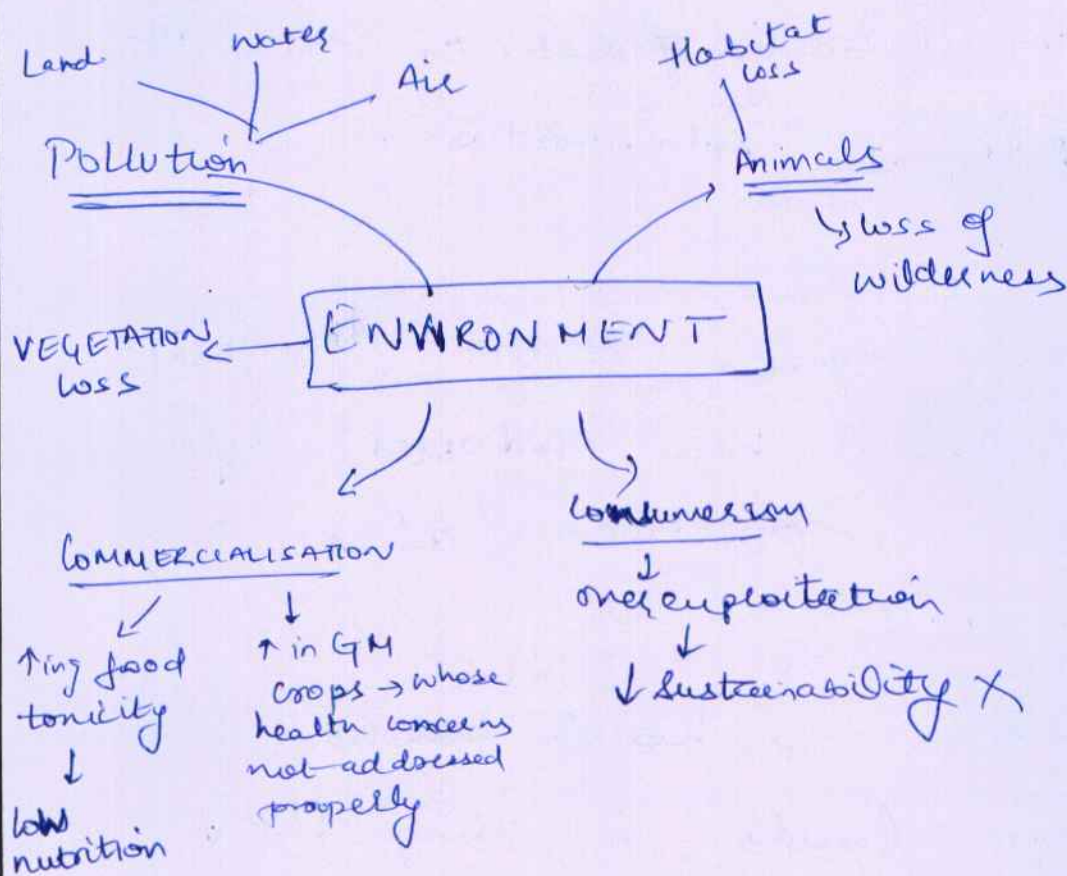 Land
water
Air
Pollution
Habitat
loss
Animals
↳ loss of
wilderness
VEGETATION
loss
ENVIRONMENT
COMMERCIALISATION
↑ing food
toxicity
↓
low
nutrition
↑ in GM
crops → whose
health concerns
not addressed
properly
Consumerism
↓
overexploitation
↓
↓ Sustainability X